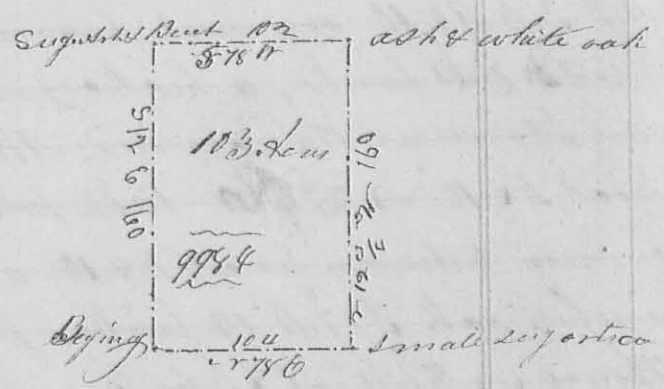 Sugartree & Beech 102 ash & white oak
S 78 W
S 12 E 160
103 Acres
N 12 W 160
9984
Beging 104 small sugartree
N 78 E